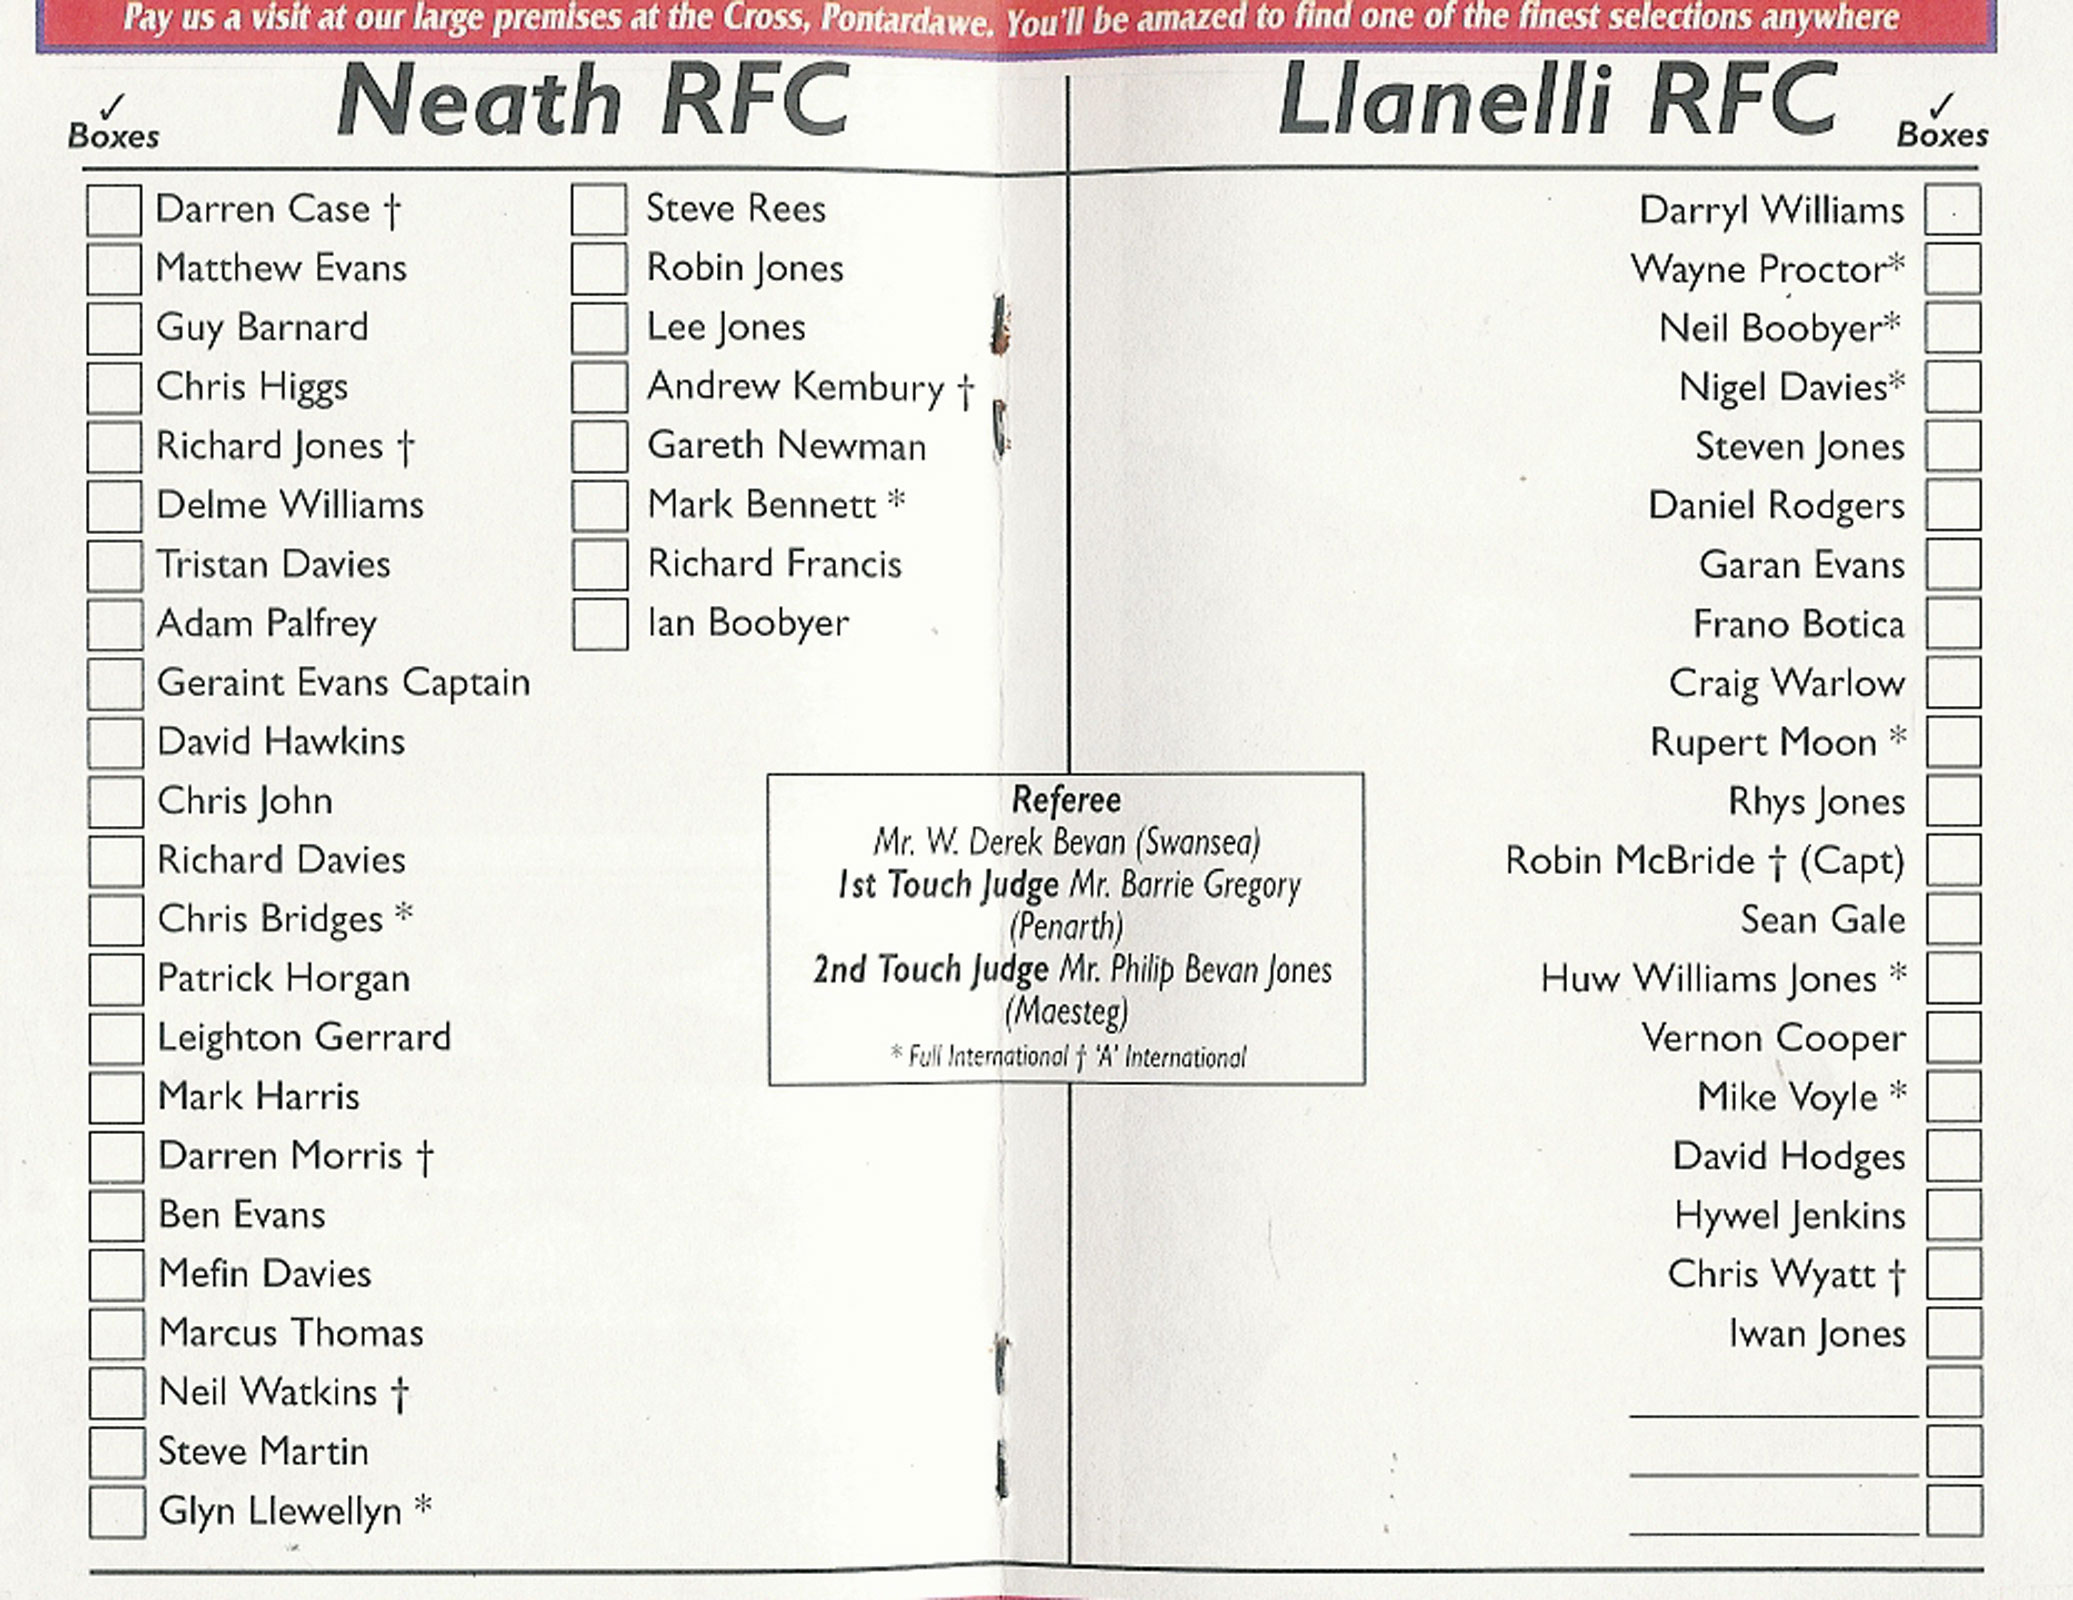 Pay us a visit at our large premises at the Cross, Pontardawe. You'll be amazed to find one of the finest selections anywhere
✓
Boxes
Neath RFC
Darren Case †
Matthew Evans
Guy Barnard
Chris Higgs
Richard Jones †
Delme Williams
Tristan Davies
Adam Palfrey
Geraint Evans Captain
David Hawkins
Chris John
Richard Davies
Chris Bridges *
Patrick Horgan
Leighton Gerrard
Mark Harris
Darren Morris †
Ben Evans
Mefin Davies
Marcus Thomas
Neil Watkins †
Steve Martin
Glyn Llewellyn *
Steve Rees
Robin Jones
Lee Jones
Andrew Kembury †
Gareth Newman
Mark Bennett *
Richard Francis
Ian Boobyer
Referee
Mr. W. Derek Bevan (Swansea)
1st Touch Judge Mr. Barrie Gregory
(Penarth)
2nd Touch Judge Mr. Philip Bevan Jones
(Maesteg)
* Full International † 'A' International
Llanelli RFC
✓
Boxes
Darryl Williams
Wayne Proctor*
Neil Boobyer*
Nigel Davies*
Steven Jones
Daniel Rodgers
Garan Evans
Frano Botica
Craig Warlow
Rupert Moon *
Rhys Jones
Robin McBride † (Capt)
Sean Gale
Huw Williams Jones *
Vernon Cooper
Mike Voyle *
David Hodges
Hywel Jenkins
Chris Wyatt †
Iwan Jones